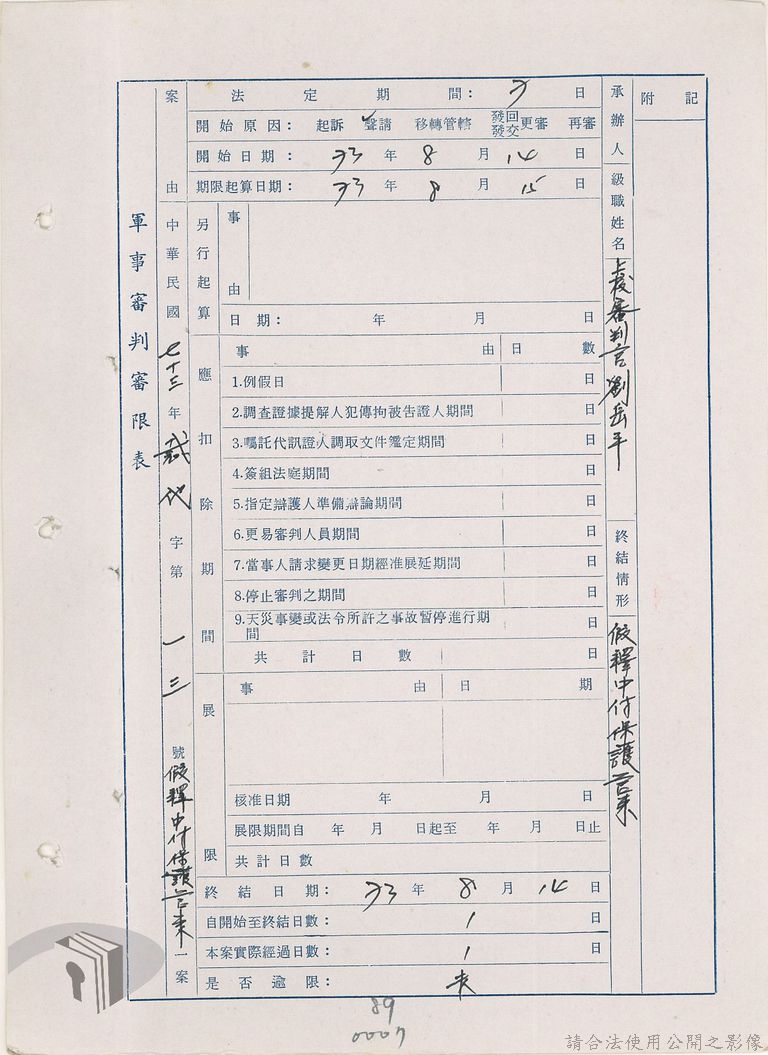 軍事審判審限表
案由 中華民國七十三年貳代字第一三號假釋中付保護管束一案
法定期間： 日
開始原因： 起訴 聲請 移轉管轄 發回發交更審 再審
開始日期： 73年8月14日
期限起算日期： 73年8月15日
另行起算
事由
日期： 年 月 日
應扣除期間
事由 日數
1.例假日 日
2.調查證據提解人犯傳拘被告證人期間 日
3.囑託代訊證人調取文件鑑定期間 日
4.簽組法庭期間 日
5.指定辯護人準備辯論期間 日
6.更易審判人員期間 日
7.當事人請求變更日期經准展延期間 日
8.停止審判之期間 日
9.天災事變或法令所許之事故暫停進行期
間 日
共計日數 日
展限
事由 日期
核准日期 年 月 日
展限期間自 年 月 日起至 年 月 日止
共計日數
終結日期： 73年8月14日
自開始至終結日數： 1日
本案實際經過日數： 1日
是否逾限：
承辦人級職姓名 上校審判官劉岳平
終結情形 假釋中付保護管束
附記
89
0007
請合法使用公開之影像